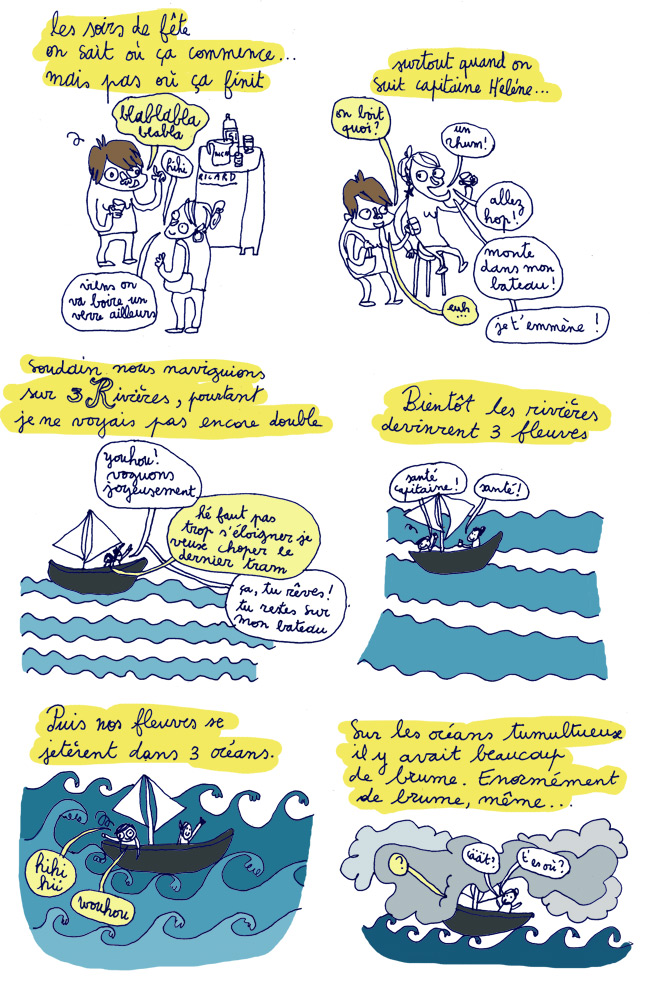 les soirs de fête
on sait où ça commence...
mais pas où ça finit
blablabla
blabla
hihi
RICARD
viens on
va boire un
verre ailleurs
surtout quand on
suit capitaine Hélène...
on boit
quoi?
un
rhum!
allez
hop!
monte
dans mon
bateau!
euh
...
je t'emmène !
Soudain nous naviguions
sur 3 Rivières, pourtant
je ne voyais pas encore double
youhou!
voguons
joyeusement
hé faut pas
trop s'éloigner je
veux choper le
dernier tram
ça, tu rêves!
tu restes sur
mon bateau
Bientôt les rivières
devinrent 3 fleuves
santé
capitaine !
santé!
Puis nos fleuves se
jetèrent dans 3 océans.
hihi
hii
wouhou
Sur les océans tumultueux
il y avait beaucoup
de brume. Enormément
de brume, même...
?
t'es où?